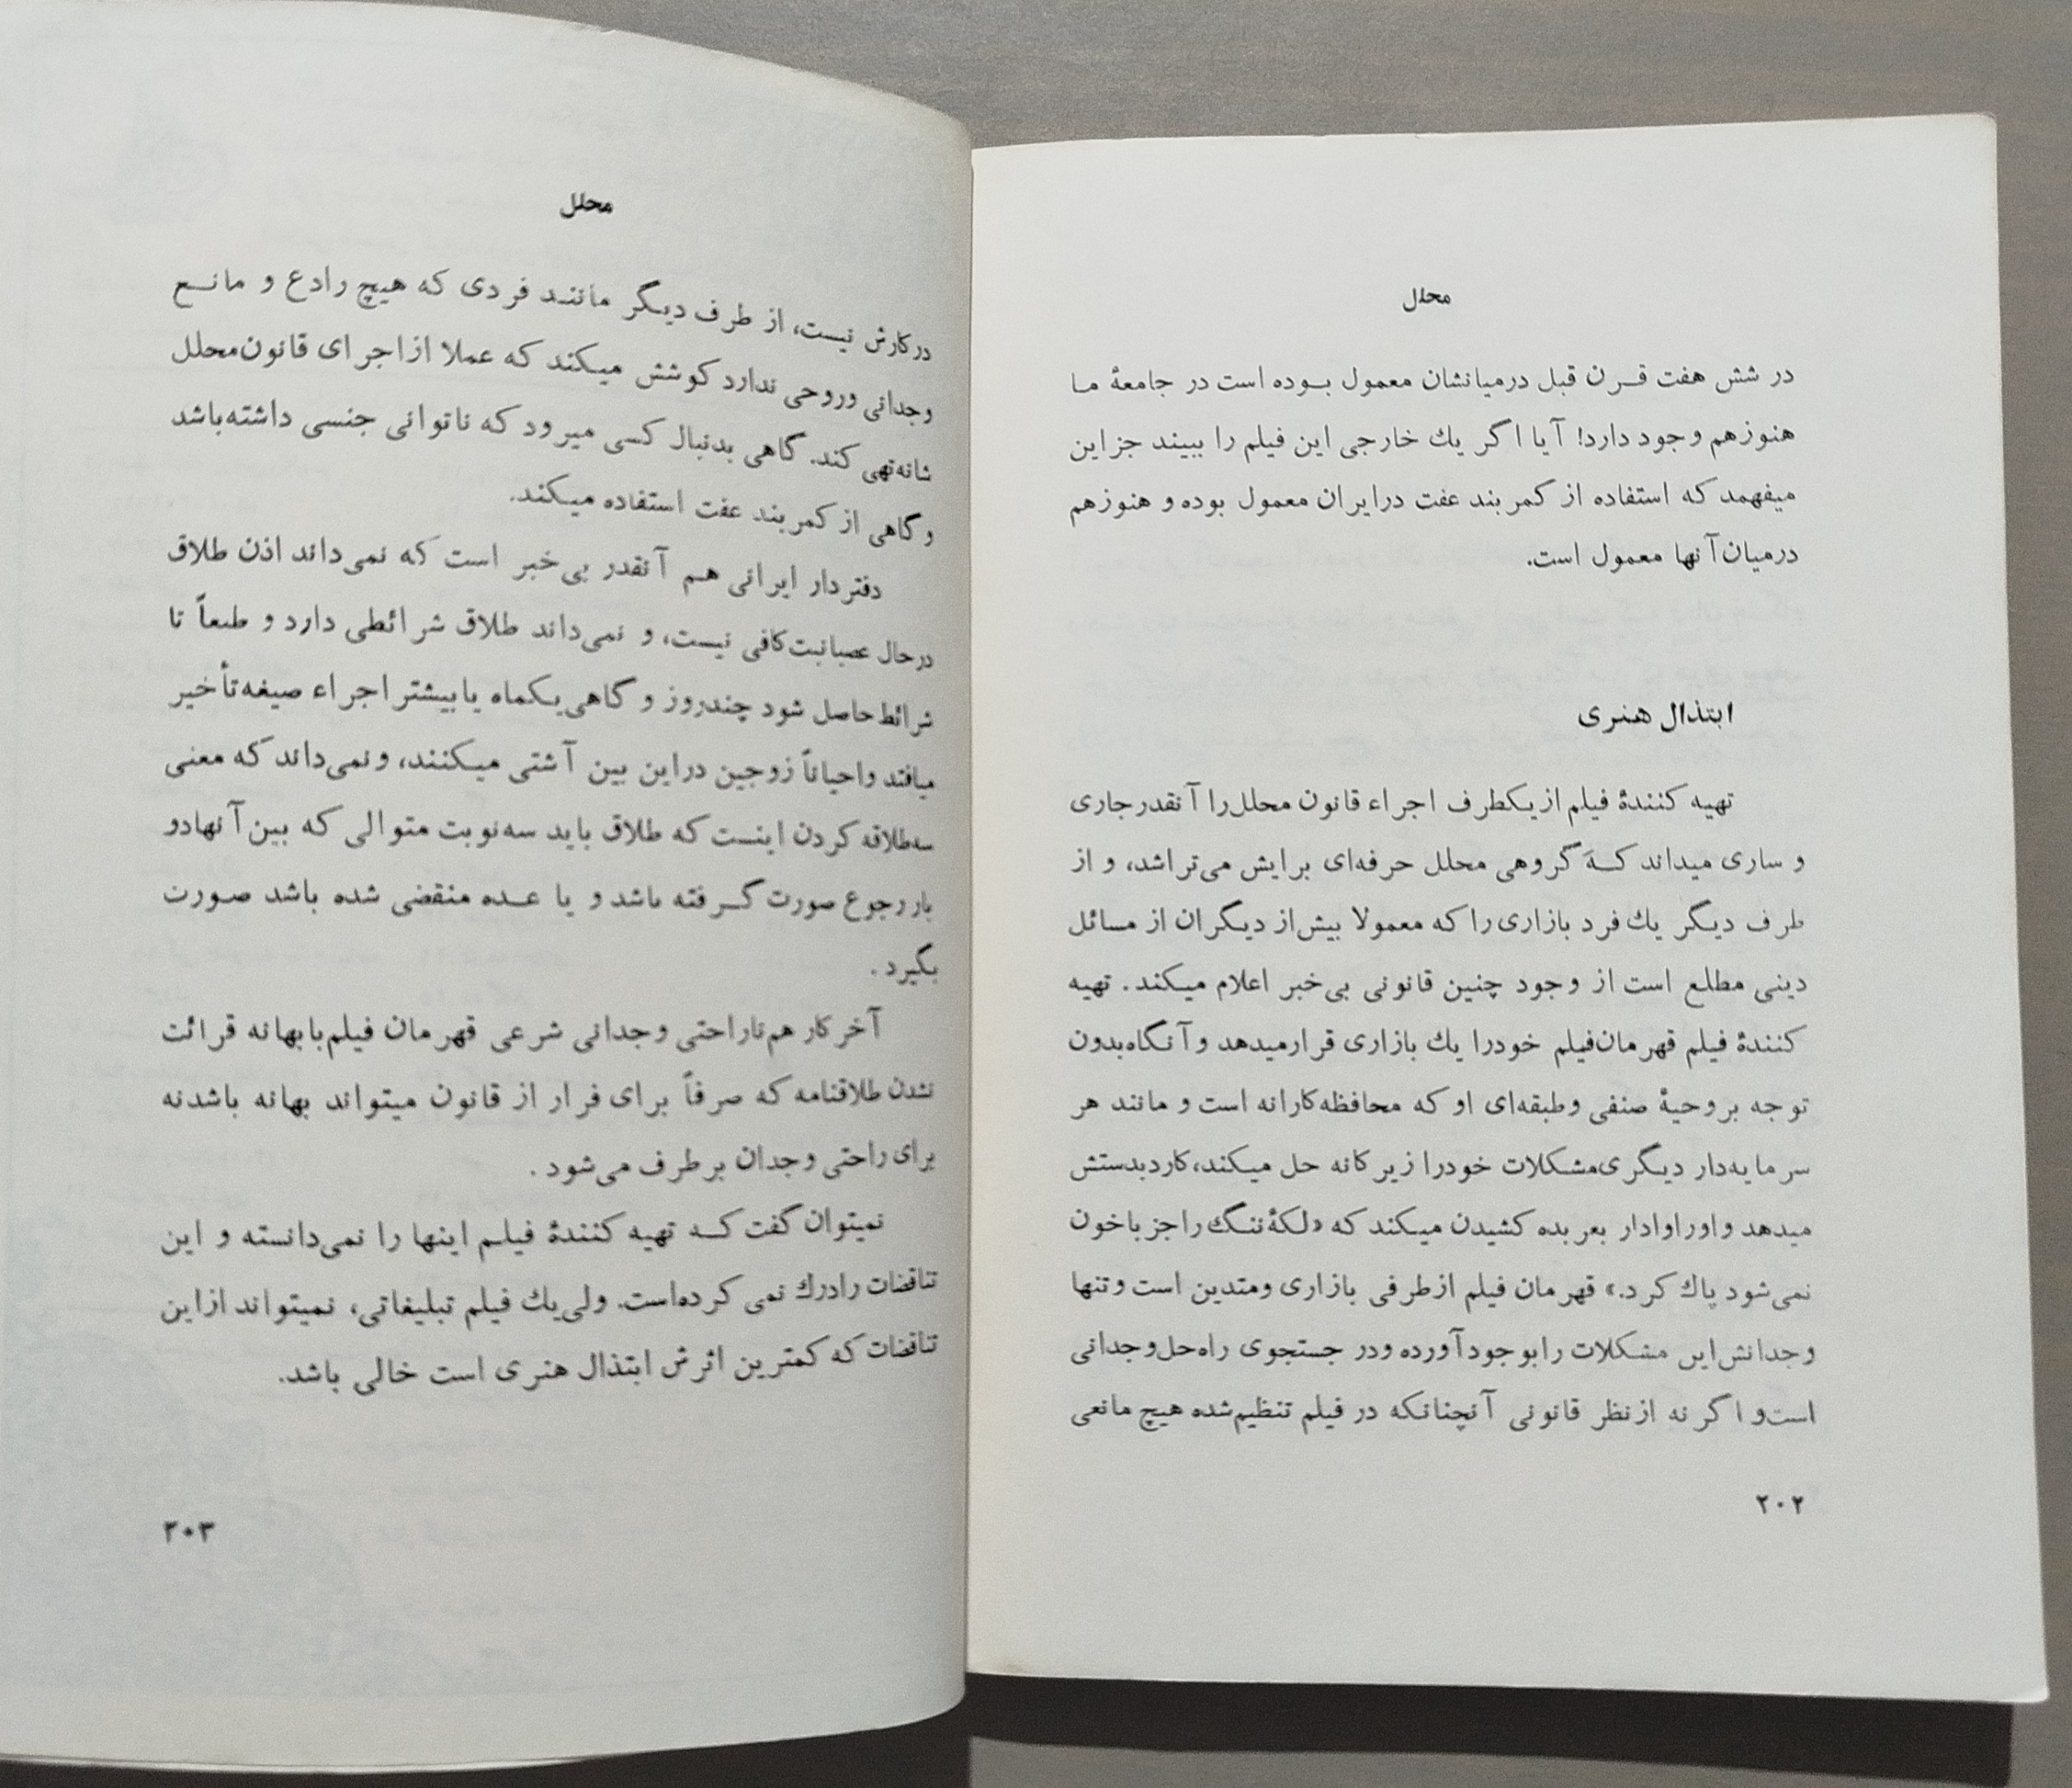 محلل
در شش هفت قرن قبل درمیانشان معمول بوده است در جامعهٔ ما
هنوزهم وجود دارد! آیا اگر یك خارجی این فیلم را ببیند جزاین
میفهمد که استفاده از کمربند عفت درایران معمول بوده و هنوزهم
درمیان‌آنها معمول است.
ابتذال هنری
تهیه کنندهٔ فیلم ازیکطرف اجراء قانون محلل‌را آنقدرجاری
و ساری میداند که گروهی محلل حرفه‌ای برایش می‌تراشد، و از
طرف دیگر یك فرد بازاری‌را که معمولا بیش‌از دیگران از مسائل
دینی مطلع است از وجود چنین قانونی بی‌خبر اعلام میکند. تهیه
کنندهٔ فیلم قهرمان‌فیلم خودرا یك بازاری قرارمیدهد وآنگاه‌بدون
توجه بروحیهٔ صنفی وطبقه‌ای او که محافظه‌کارانه است و مانند هر
سرمایه‌دار دیگری‌مشکلات خودرا زیرکانه حل میکند،کاردبدستش
میدهد واوراوادار بعربده کشیدن میکند که «لکهٔ ننگ راجز باخون
نمی‌شود پاك کرد.» قهرمان فیلم ازطرفی بازاری ومتدین است وتنها
وجدانش‌این مشکلات رابوجودآورده ودر جستجوی راه‌حل‌وجدانی
است‌و اگرنه ازنظر قانونی آنچنانکه در فیلم تنظیم‌شده هیچ مانعی
۲۰۲
محلل
درکارش نیست، از طرف دیگر مانند فردی که هیچ رادع و مانع
وجدانی وروحی ندارد کوشش میکند که عملا ازاجرای قانون‌محلل
شانه‌تهی کند. گاهی بدنبال کسی میرود که ناتوانی جنسی داشته‌باشد
وگاهی از کمربند عفت استفاده میکند.
دفتردار ایرانی هم آنقدر بی‌خبر است که نمی‌داند اذن طلاق
درحال عصبانیت‌کافی نیست، و نمی‌داند طلاق شرائطی دارد و طبعاً تا
شرائط‌حاصل شود چندروز و گاهی‌یکماه یابیشتراجراء صیغه‌تأخیر
میافتد واحیاناً زوجین دراین بین آشتی میکنند، ونمی‌داند که معنی
سه‌طلاقه کردن اینست که طلاق باید سه‌نوبت متوالی که بین‌آنهادو
باررجوع صورت گرفته باشد و یا عده منقضی شده باشد صورت
بگیرد.
آخرکار هم‌ناراحتی وجدانی شرعی قهرمان فیلم‌بابهانه قرائت
نشدن طلاقنامه که صرفاً برای فرار از قانون میتواند بهانه باشدنه
برای راحتی وجدان برطرف می‌شود.
نمیتوان گفت که تهیه کنندهٔ فیلم اینها را نمی‌دانسته و این
تناقضات رادرك نمی کرده‌است. ولی‌یك فیلم تبلیغاتی، نمیتواند ازاین
تناقضات که کمترین اثرش ابتذال هنری است خالی باشد.
۲۰۳